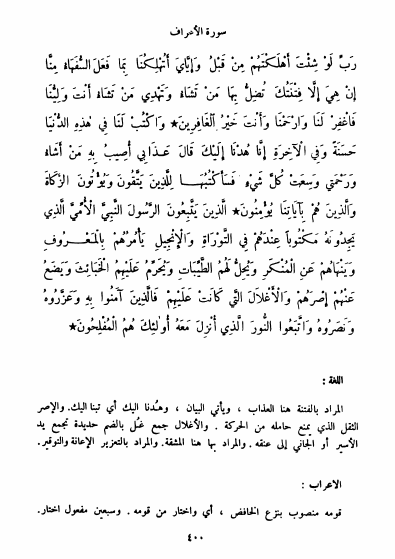 سورة الأعراف
رَبِّ لَوْ شِئْتَ أَهْلَكْتَهُمْ مِنْ قَبْلُ وَإِيَّايَ أَتُهْلِكُنَا بِمَا فَعَلَ السُّفَهَاءُ مِنَّا
إِنْ هِيَ إِلَّا فِتْنَتُكَ تُضِلُّ بِهَا مَنْ تَشَاءُ وَتَهْدِي مَنْ تَشَاءُ أَنْتَ وَلِيُّنَا
فَاغْفِرْ لَنَا وَارْحَمْنَا وَأَنْتَ خَيْرُ الْغَافِرِينَ * وَاكْتُبْ لَنَا فِي هَذِهِ الدُّنْيَا
حَسَنَةً وَفِي الْآخِرَةِ إِنَّا هُدْنَا إِلَيْكَ قَالَ عَذَابِي أُصِيبُ بِهِ مَنْ أَشَاءُ
وَرَحْمَتِي وَسِعَتْ كُلَّ شَيْءٍ فَسَأَكْتُبُهَا لِلَّذِينَ يَتَّقُونَ وَيُؤْتُونَ الزَّكَاةَ
وَالَّذِينَ هُمْ بِآيَاتِنَا يُؤْمِنُونَ * الَّذِينَ يَتَّبِعُونَ الرَّسُولَ النَّبِيَّ الْأُمِّيَّ الَّذِي
يَجِدُونَهُ مَكْتُوبًا عِنْدَهُمْ فِي التَّوْرَاةِ وَالْإِنْجِيلِ يَأْمُرُهُمْ بِالْمَعْرُوفِ
وَيَنْهَاهُمْ عَنِ الْمُنْكَرِ وَيُحِلُّ لَهُمُ الطَّيِّبَاتِ وَيُحَرِّمُ عَلَيْهِمُ الْخَبَائِثَ وَيَضَعُ
عَنْهُمْ إِصْرَهُمْ وَالْأَغْلَالَ الَّتِي كَانَتْ عَلَيْهِمْ فَالَّذِينَ آمَنُوا بِهِ وَعَزَّرُوهُ
وَنَصَرُوهُ وَاتَّبَعُوا النُّورَ الَّذِي أُنْزِلَ مَعَهُ أُولَئِكَ هُمُ الْمُفْلِحُونَ *
اللغة :
المراد بالفتنة هنا العذاب ، ويأتي البيان ، وهُدنا اليك أي تبنا اليك. والإصر
الثقل الذي يمنع حامله من الحركة . والأغلال جمع غُل بالضم حديدة تجمع يد
الأسير أو الجاني إلى عنقه. والمراد بها هنا المشقة. والمراد بالتعزير الإعانة والتوقير.
الاعراب :
قومه منصوب بنزع الخافض ، أي واختار من قومه . وسبعين مفعول اختار.
٤٠٠